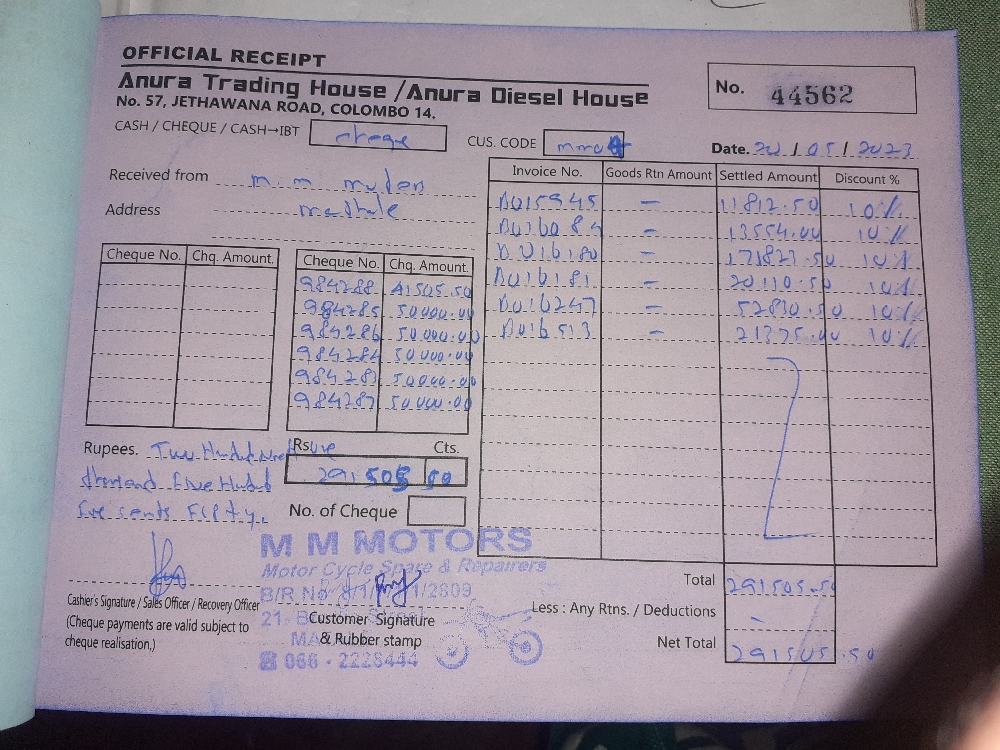 OFFICIAL RECEIPT
Anura Trading House /Anura Diesel House
No. 57, JETHAWANA ROAD, COLOMBO 14.
No. 44562
CASH / CHEQUE / CASH→IBT cheque
CUS. CODE
Date. / 05 / 2023
Received from m. m
Address
Invoice No. Goods Rtn Amount Settled Amount Discount %
— 11812.50 10%
— 13554.00 10%
— 171827.50 10%
— 20110.50 10%
— 10%
— 21375.00 10%
Cheque No. Chq. Amount.
Cheque No. Chq. Amount.
984288 41505.50
984285 50000.00
984286 50.000.00
984284 50000.00
984283 50000.00
984287 50000.00
Rupees. Two
Five
cents Fifty.
Rs. Cts.
291 505 50
No. of Cheque
M M MOTORS
Motor Cycle Spare & Repairers
B/R No 1/2809
21-
Cashier's Signature / Sales Officer / Recovery Officer
(Cheque payments are valid subject to
cheque realisation.)
Customer Signature
& Rubber stamp
☎ 066 - 2228444
Total 291505.50
Less : Any Rtns. / Deductions -
Net Total 291505.50